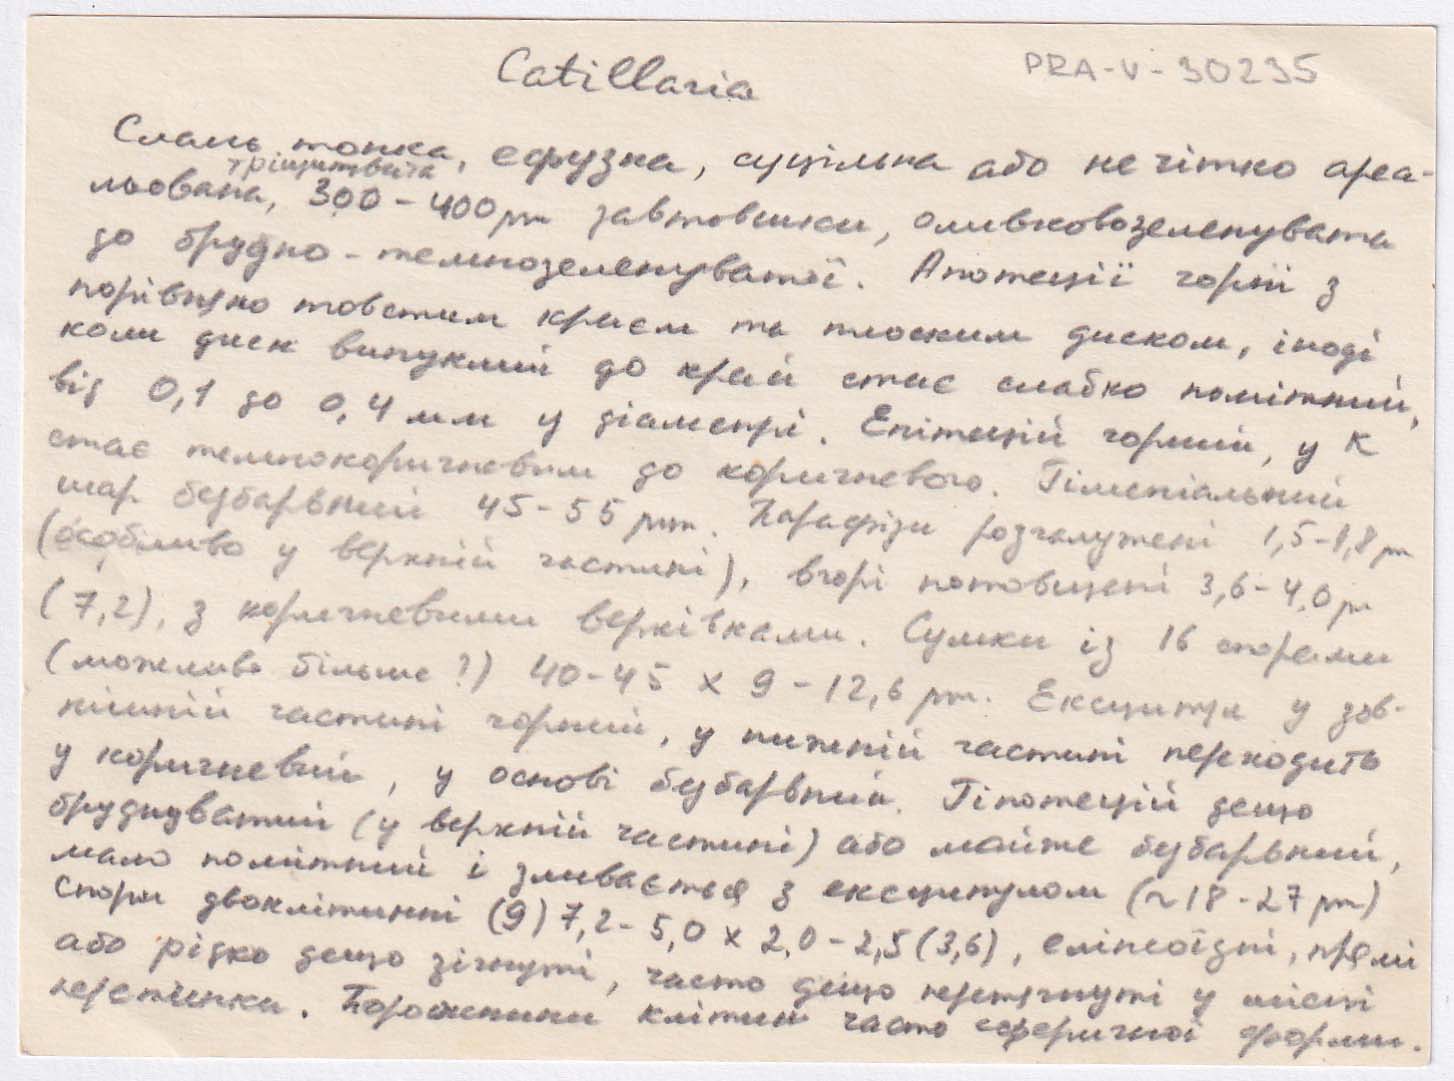 Catillaria
PRA-V-30235
Слань тонка, ефузна, суцільна або нечітко ареа-
тріщинувата
льована, 300-400 μm завтовшки, оливковозеленувата
до брудно-темнозеленуватої. Апотеції чорні з
порівняно товстим краєм та плоским диском, іноді
коли диск випуклий до край стає слабко помітний,
від 0,1 до 0,4 мм у діаметрі. Епітецій чорний, у К
стає темнокоричневим до коричневого. Гіменіальний
шар безбарвний 45-55 μm. Парафізи розгалужені 1,5-1,8 μm
(особливо у верхній частині), вгорі потовщені 3,6-4,0 μm
(7,2), з коричневими верхівками. Сумки із 16 спорами
(можливо більше?) 40-45 x 9-12,6 μm. Ексципул у зов-
нішній частині чорний, у нижній частині переходить
у коричневий, у основі безбарвний. Гіпотецій дещо
бруднуватий (у верхній частині) або майже безбарвний,
мало помітний і зливається з ексципулом (~18-27 μm)
Спори двоклітинні (9) 7,2-5,0 x 2,0-2,5 (3,6), еліпсоїдні, прямі
або рідко дещо зігнуті, часто дещо перетягнуті у місці
перетинки. Порожнини клітин часто сферичної форми.